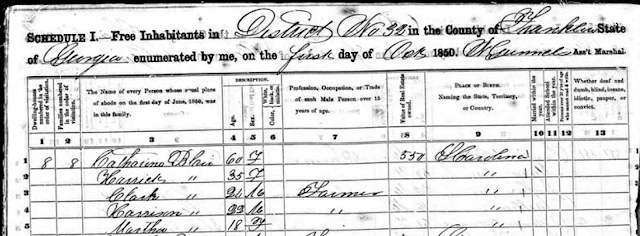 SCHEDULE I. Free Inhabitants in District No 32 in the County of Franklin State
of Georgia enumerated by me, on the first day of Oct 1850. Ass't Marshal.
DESCRIPTION.
Dwelling-houses numbered in the order of visitation.
Families numbered in the order of visitation.
The Name of every Person whose usual place of abode on the first day of June, 1850, was in this family.
Age.
Sex.
Profession, Occupation, or Trade of each Male Person over 15 years of age.
Value of Real Estate owned.
PLACE OF BIRTH. Naming the State, Territory, or Country.
Married within the year.
Attended School within the year.
Whether deaf and dumb, blind, insane, idiotic, pauper, or convict.
1 2 3 4 5 6 7 8 9 10 11 12 13
1 8 8 Catharine Blair 60 F 550 S Carolina
2 Harriet " 35 F "
3 Clark " 24 M Farmer "
4 Harrison " 22 M " "
5 Martha " 18 F "